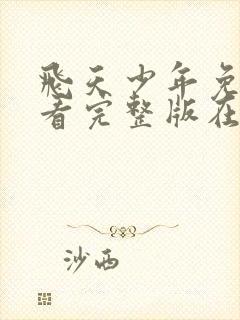 飛天少年免
看完整版在
沙西